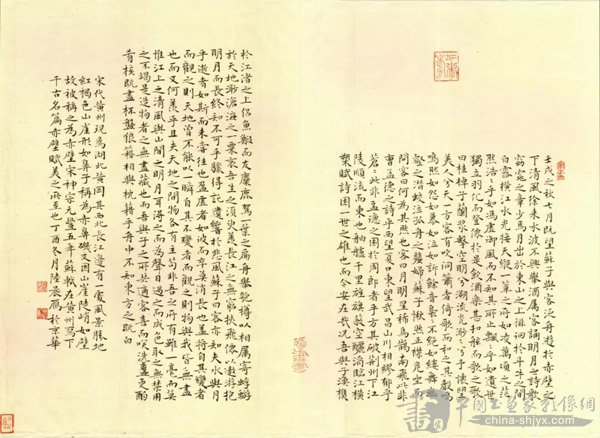 壬戌之秋七月既望蘇子與客泛舟遊於赤壁之
下清風徐來水波不興舉酒屬客誦明月之詩歌
窈窕之章少焉月出於東山之上徘徊於斗牛之間
白露橫江水光接天縱一葦之所如凌萬頃之茫
然浩浩乎如馮虛御風而不知其所止飄飄乎如遺世
獨立羽化而登僊於是飲酒樂甚扣舷而歌之歌
曰桂棹兮蘭槳擊空明兮溯流光渺渺兮予懷望
美人兮天一方客有吹洞簫者倚歌而和之其聲嗚
嗚然如怨如慕如泣如訴餘音裊裊不絕如縷舞幽
壑之潛蛟泣孤舟之嫠婦蘇子愀然正襟危坐而
問客曰何為其然也客曰月明星稀烏鵲南飛此非
曹孟德之詩乎西望夏口東望武昌山川相繆鬱乎
蒼蒼此非孟德之困於周郎者乎方其破荊州下江
陵順流而東也舳艫千里旌旗蔽空釃酒臨江橫
槊賦詩固一世之雄也而今安在哉況吾與子漁樵
於江渚之上侶魚鰕而友麋鹿駕一葉之扁舟舉匏樽以相屬寄蜉蝣
於天地渺滄海之一粟哀吾生之須臾羨長江之無窮挾飛僊以遨遊抱
明月而長終知不可乎驟得託遺響於悲風蘇子曰客亦知夫水與月
乎逝者如斯而未嘗往也盈虛者如彼而卒莫消長也蓋將自其變者
而觀之則天地曾不能以一瞬自其不變者而觀之則物與我皆無盡
也而又何羨乎且夫天地之間物各有主苟非吾之所有雖一毫而莫
惟江上之清風與山間之明月耳得之而為聲目遇之而成色取之無禁用
之不竭是造物者之無盡藏也而吾與子之所共適客喜而笑洗盞更酌
肴核既盡杯盤狼籍相與枕藉乎舟中不知東方之既白
宋代黃州現為湖北黃岡其西北長江邊有一處風景勝地
紅褐色山崖形如鼻子稱為赤鼻磯又因山崖陡峭如壁
故被稱之為赤壁宋神宗元豐五年蘇軾在黃州寫下
千古名篇赤壁賦美之所至也丁酉冬月陸 於京華
中国工艺家影像网
www.china-shjyx.com